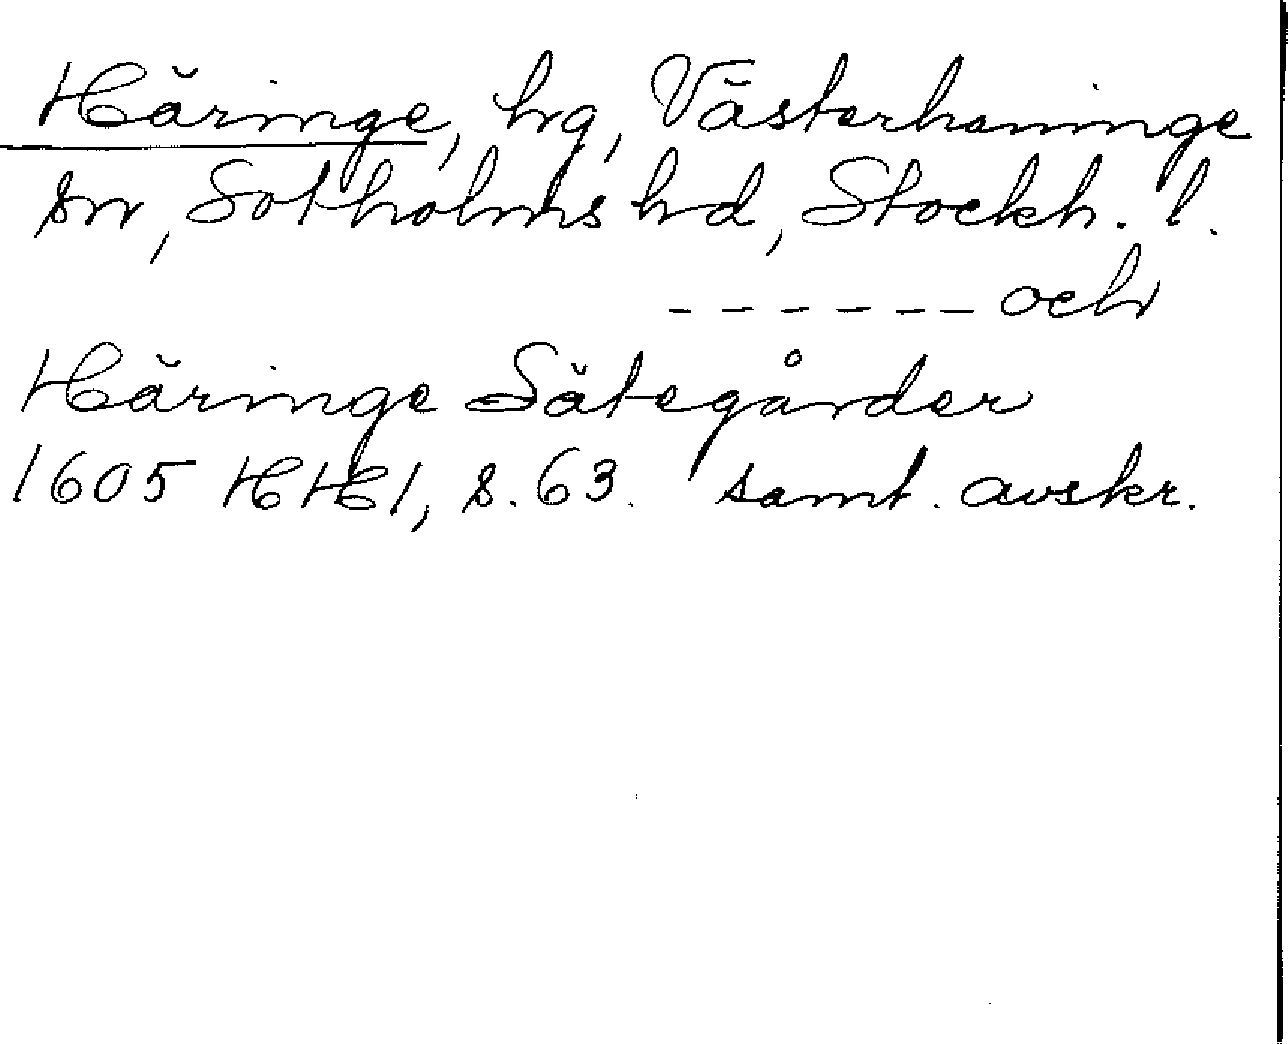 Häringe, hrg, Västerhaninge
sn, Sotholms hd, Stockh. l.
------ och
Häringe Sätegårder
1605 HH1, s. 63. samt. avskr.